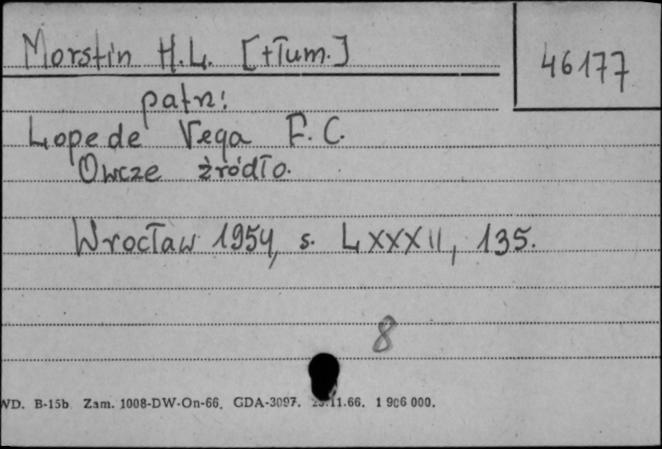 Morstin H.L. [tłum.]
46177
patrz:
Lope de Vega F. C.
Owcze źródło.
Wrocław 1954, s. LXXXII, 135.
8
WD. B-15b Zam. 1008-DW-On-66. GDA-3097. 11.66. 1 906 000.